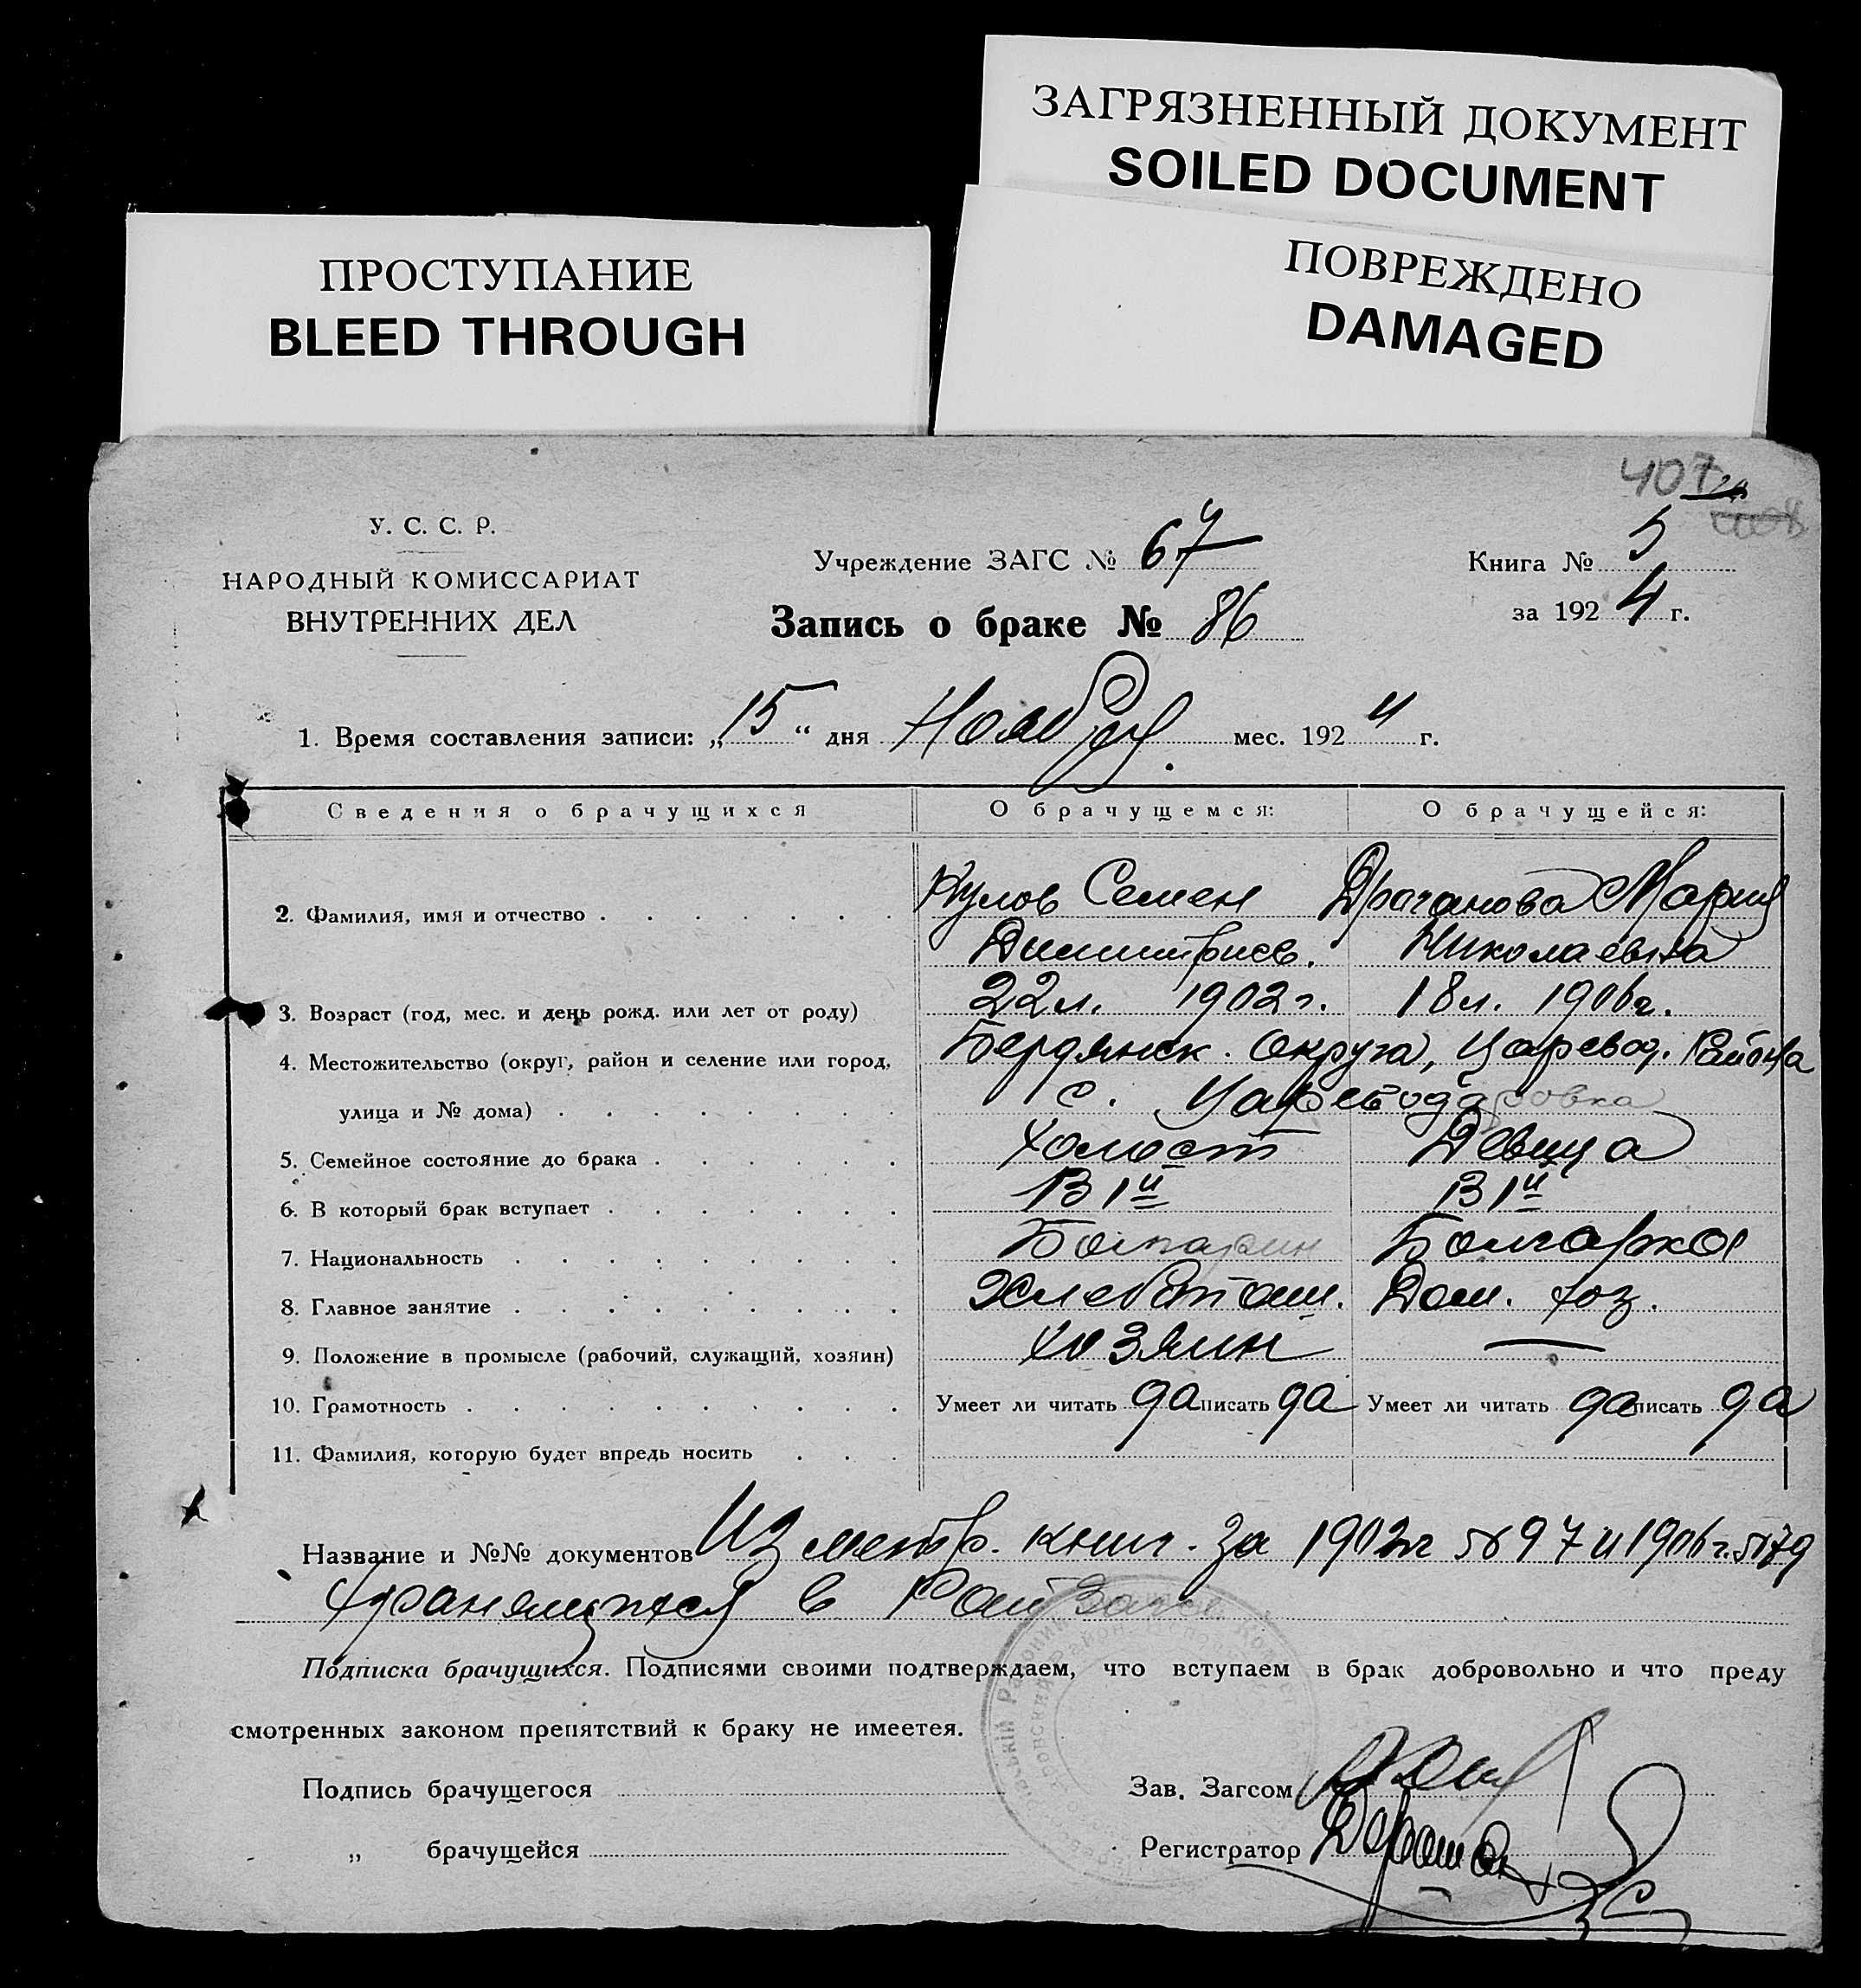 ЗАГРЯЗНЕННЫЙ ДОКУМЕНТ
SOILED DOCUMENT
ПОВРЕЖДЕНО
DAMAGED
ПРОСТУПАНИЕ
BLEED THROUGH
407
У. С. С. Р.
НАРОДНЫЙ КОМИССАРИАТ
ВНУТРЕННИХ ДЕЛ
Учреждение ЗАГС № 67
Книга № 5
Запись о браке № 86
за 1924 г.
1. Время составления записи: „15“ дня Ноября мес. 1924 г.
Сведения о брачущихся О брачущемся: О брачущейся:
2. Фамилия, имя и отчество Кулов Семен Драганова Мария
Димитриев. Николаевна
3. Возраст (год, мес. и день рожд. или лет от роду) 22 л. 1902 г. 18 л. 1906 г.
4. Местожительство (округ, район и селение или город, Бердянск. округа, Царевод. Района
улица и № дома) с. Цареводаровка
5. Семейное состояние до брака Холост Девица
6. В который брак вступает В 1й В 1й
7. Национальность Болгарин Болгарка
8. Главное занятие Хлебопаш. Дом. хоз.
9. Положение в промысле (рабочий, служащий, хозяин) хозяин —
10. Грамотность Умеет ли читать да писать да Умеет ли читать да писать да
11. Фамилия, которую будет впредь носить
Название и №№ документов Из метр. книг. за 1902 г № 97 и 1906 г. № 79
хранящихся в РайЗагсе
Подписка брачущихся. Подписями своими подтверждаем, что вступаем в брак добровольно и что преду
смотренных законом препятствий к браку не имеетея.
Подпись брачущегося
Зав. Загсом
„ брачущейся
Регистратор